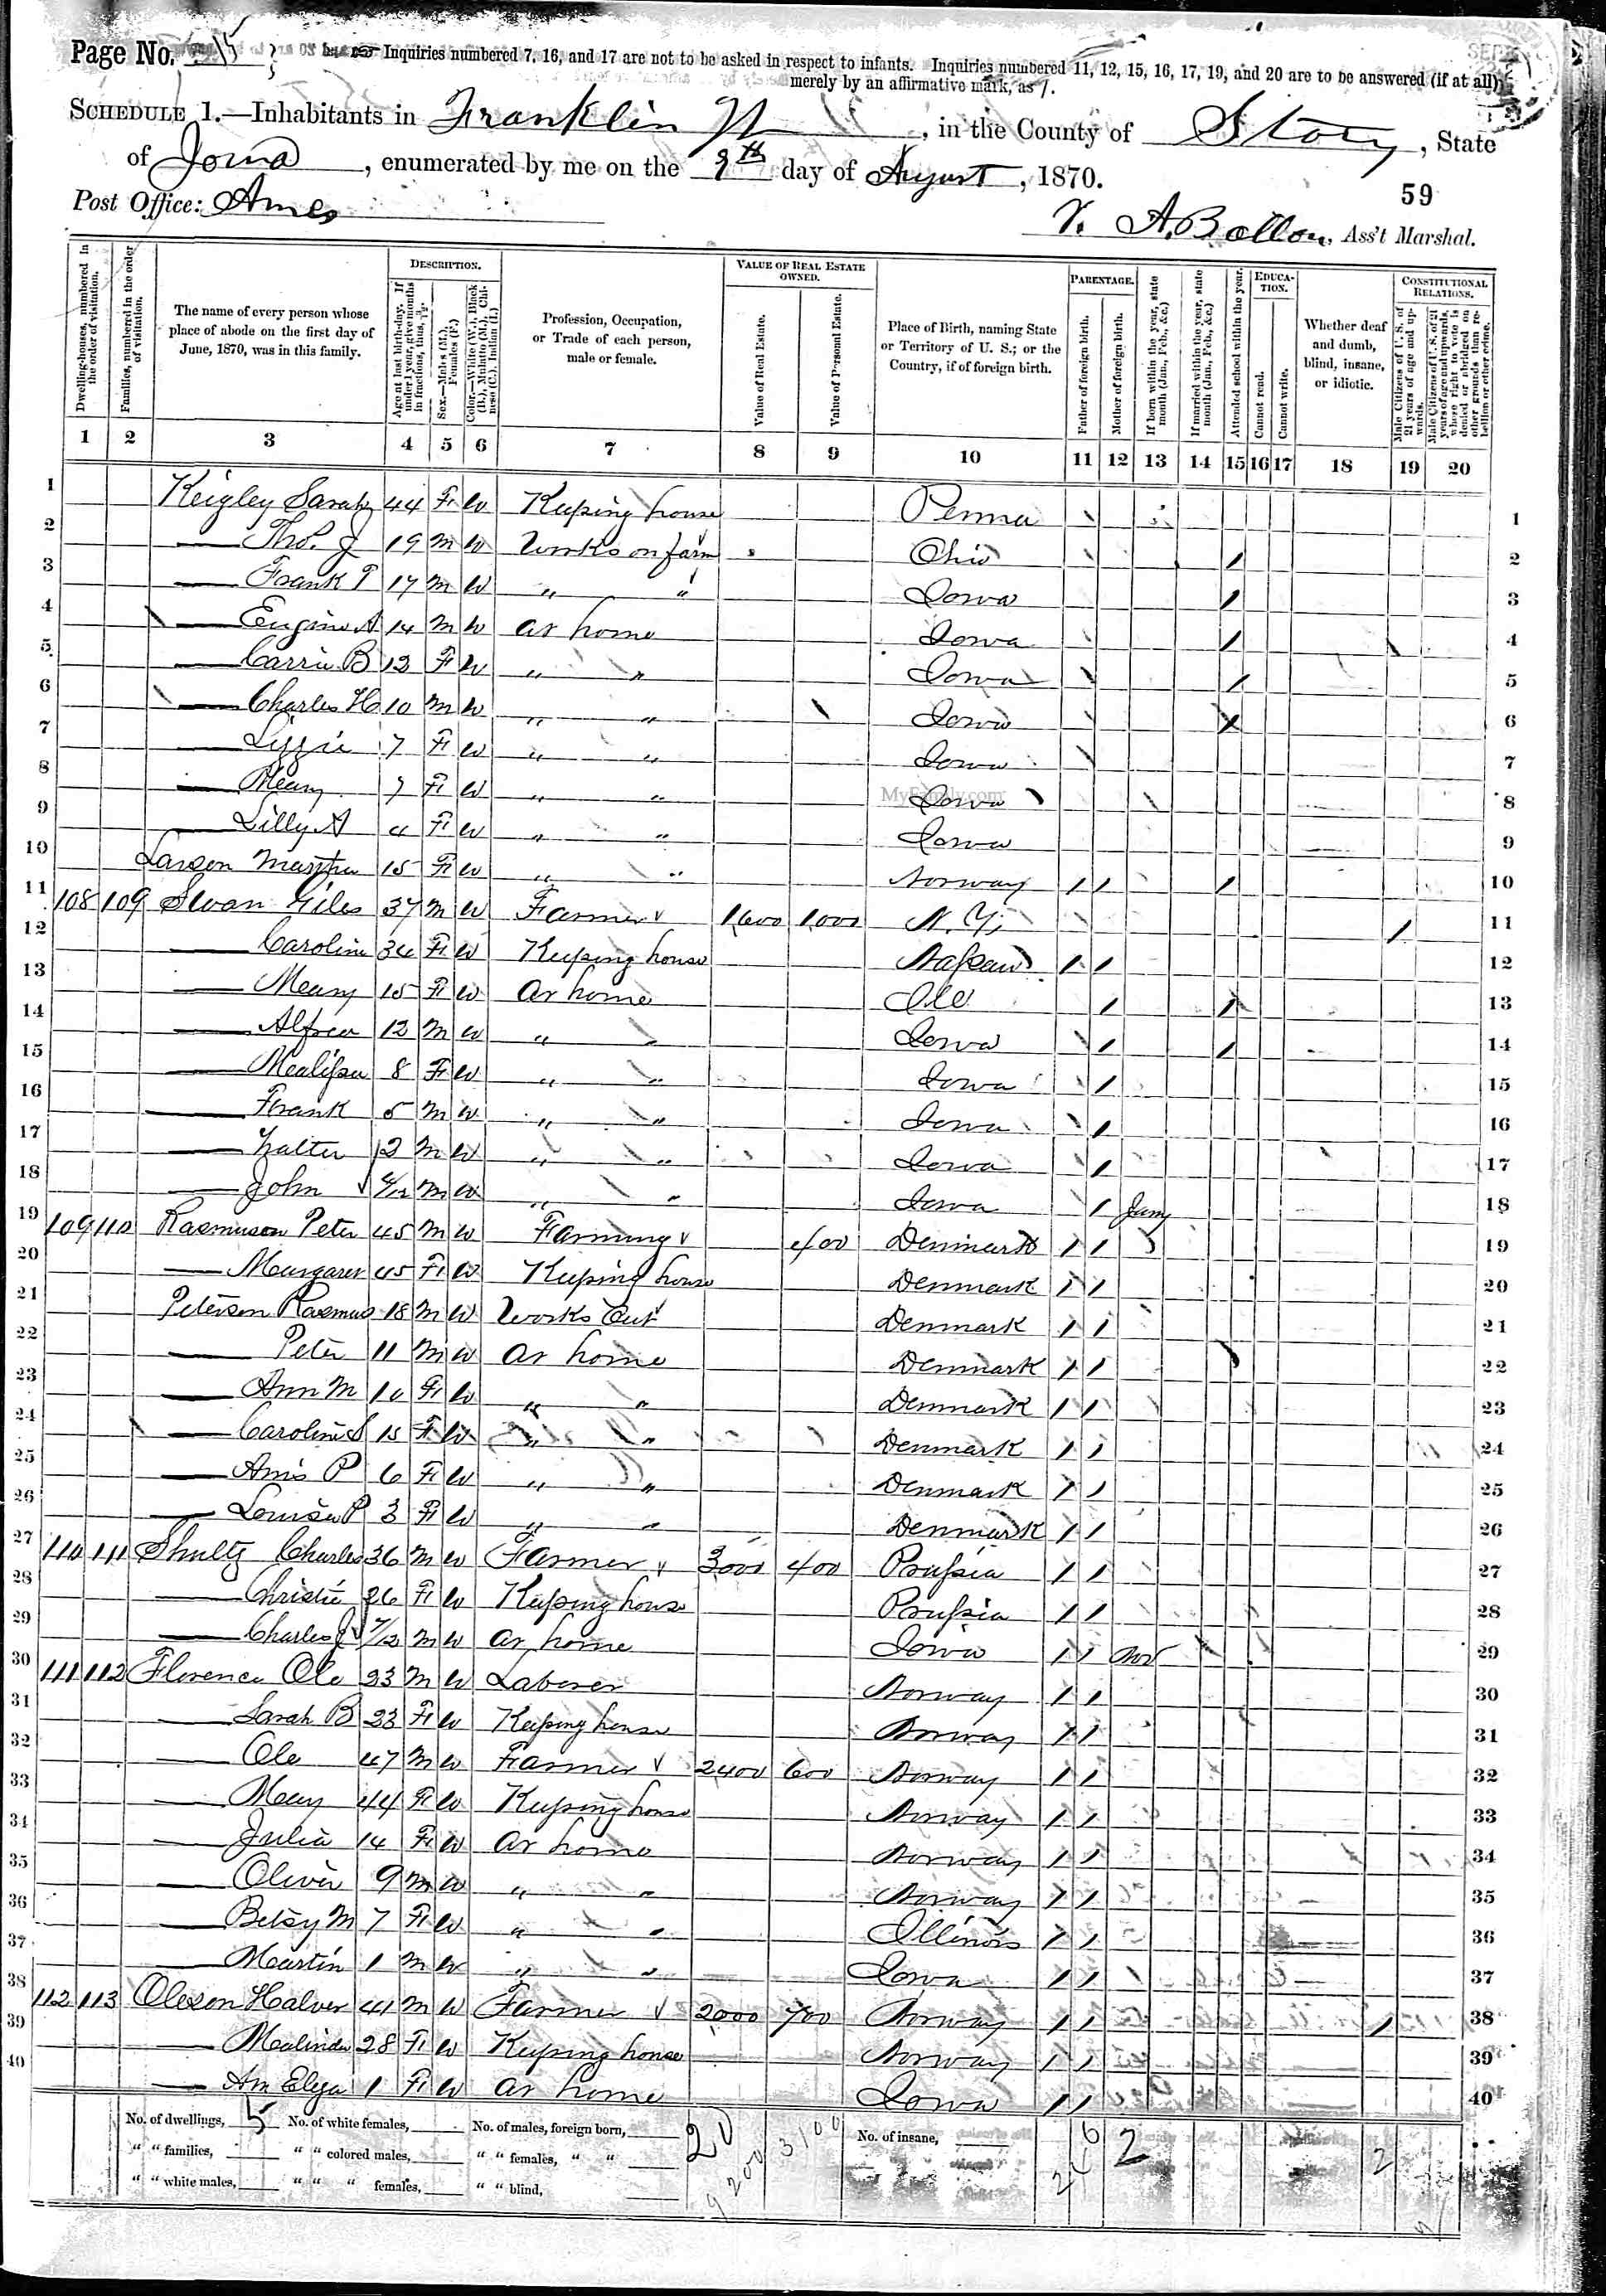 Page No. 15 Inquiries numbered 7, 16, and 17 are not to be asked in respect to infants. Inquiries numbered 11, 12, 15, 16, 17, 19, and 20 are to be answered (if at all)
merely by an affirmative mark, as /.
SCHEDULE 1.—Inhabitants in Franklin, in the County of Story, State
of Iowa, enumerated by me on the 9th day of August, 1870.
59
Post Office: Ames
A. Ballou, Ass't Marshal.
DESCRIPTION. VALUE OF REAL ESTATE OWNED. PARENTAGE. EDUCATION. CONSTITUTIONAL RELATIONS.
Dwelling-houses, numbered in the order of visitation.
Families, numbered in the order of visitation.
The name of every person whose place of abode on the first day of June, 1870, was in this family.
Age at last birth-day. If under 1 year, give months in fractions, thus, 3/12.
Sex.—Males (M.), Females (F.)
Color.—White (W.), Black (B.), Mulatto (M.), Chinese (C.), Indian (I.)
Profession, Occupation, or Trade of each person, male or female.
Value of Real Estate.
Value of Personal Estate.
Place of Birth, naming State or Territory of U. S.; or the Country, if of foreign birth.
Father of foreign birth.
Mother of foreign birth.
If born within the year, state month (Jan., Feb., &c.)
If married within the year, state month (Jan., Feb., &c.)
Attended school within the year.
Cannot read.
Cannot write.
Whether deaf and dumb, blind, insane, or idiotic.
Male Citizens of U. S. of 21 years of age and upwards.
Male Citizens of U. S. of 21 years of age and upwards, whose right to vote is denied or abridged on other grounds than rebellion or other crime.
1 2 3 4 5 6 7 8 9 10 11 12 13 14 15 16 17 18 19 20
1 Keigley Sarah 44 F W Keeping house Penna 1
2 — Tho. J 19 M W Works on farm Ohio / 2
3 — Frank T 17 M W " " Iowa / 3
4 — Eugine A 14 M W at home Iowa / 4
5 — Carrie B 12 F W " " Iowa / 5
6 — Charles H 10 M W " " Iowa / 6
7 — Lizzie 7 F W " " Iowa 7
8 — Meary 7 F W " " Iowa 8
MyFamily.com
9 — Lilly A 4 F W " " Iowa 9
10 Larson Martha 15 F W " " Norway / / / 10
11 108 109 Swan Giles 37 M W Farmer 1600 1000 N. Y. / 11
12 — Caroline 34 F W Keeping house Nassau / / 12
13 — Meary 15 F W at home Ill / / 13
14 — Alfred 12 M W " " Iowa / / 14
15 — Mealissa 8 F W " " Iowa / 15
16 — Frank 5 M W " " Iowa / 16
17 — Walter 2 M W " " Iowa / 17
18 — John 6/12 M W " " Iowa / Jany 18
19 109 110 Rasmuson Peter 45 M W Farming 400 Denmark / / 19
20 — Margaret 45 F W Keeping house Denmark / / 20
21 Peterson Rasmus 18 M W Works Out Denmark / / 21
22 — Peter 11 M W at home Denmark / / / 22
23 — Ann M 10 F W " " Denmark / / 23
24 — Caroline S 15 F W " " Denmark / / 24
25 — Anie P 6 F W " " Denmark / / 25
26 — Louisa P 3 F W " " Denmark / / 26
27 110 111 Shultz Charles 36 M W Farmer 3000 400 Prussia / / 27
28 — Christie 26 F W Keeping house Prussia / / 28
29 — Charles J 7/12 M W at home Iowa / / Nov 29
30 111 112 Florence Ole 23 M W Laborer Norway / / 30
31 — Sarah B 23 F W Keeping house Norway / / 31
32 — Ole 47 M W Farmer 2400 600 Norway / / 32
33 — Mary 44 F W Keeping house Norway / / 33
34 — Julia 14 F W at home Norway / / 34
35 — Oliver 9 M W " " Norway / / 35
36 — Betsy M 7 F W " " Illinois / / 36
37 — Martin 1 M W " " Iowa / / 37
38 112 113 Oleson Halver 41 M W Farmer 2000 700 Norway / / / 38
39 — Mealinda 28 F W Keeping house Norway / / 39
40 — Ann Eliza 1 F W at home Iowa / / 40
No. of dwellings, 5 No. of white females, No. of males, foreign born, 20 No. of insane,
" " families, " " colored males, " " females, " "
" " white males, " " " females, " " blind,
9200 3100 2 2